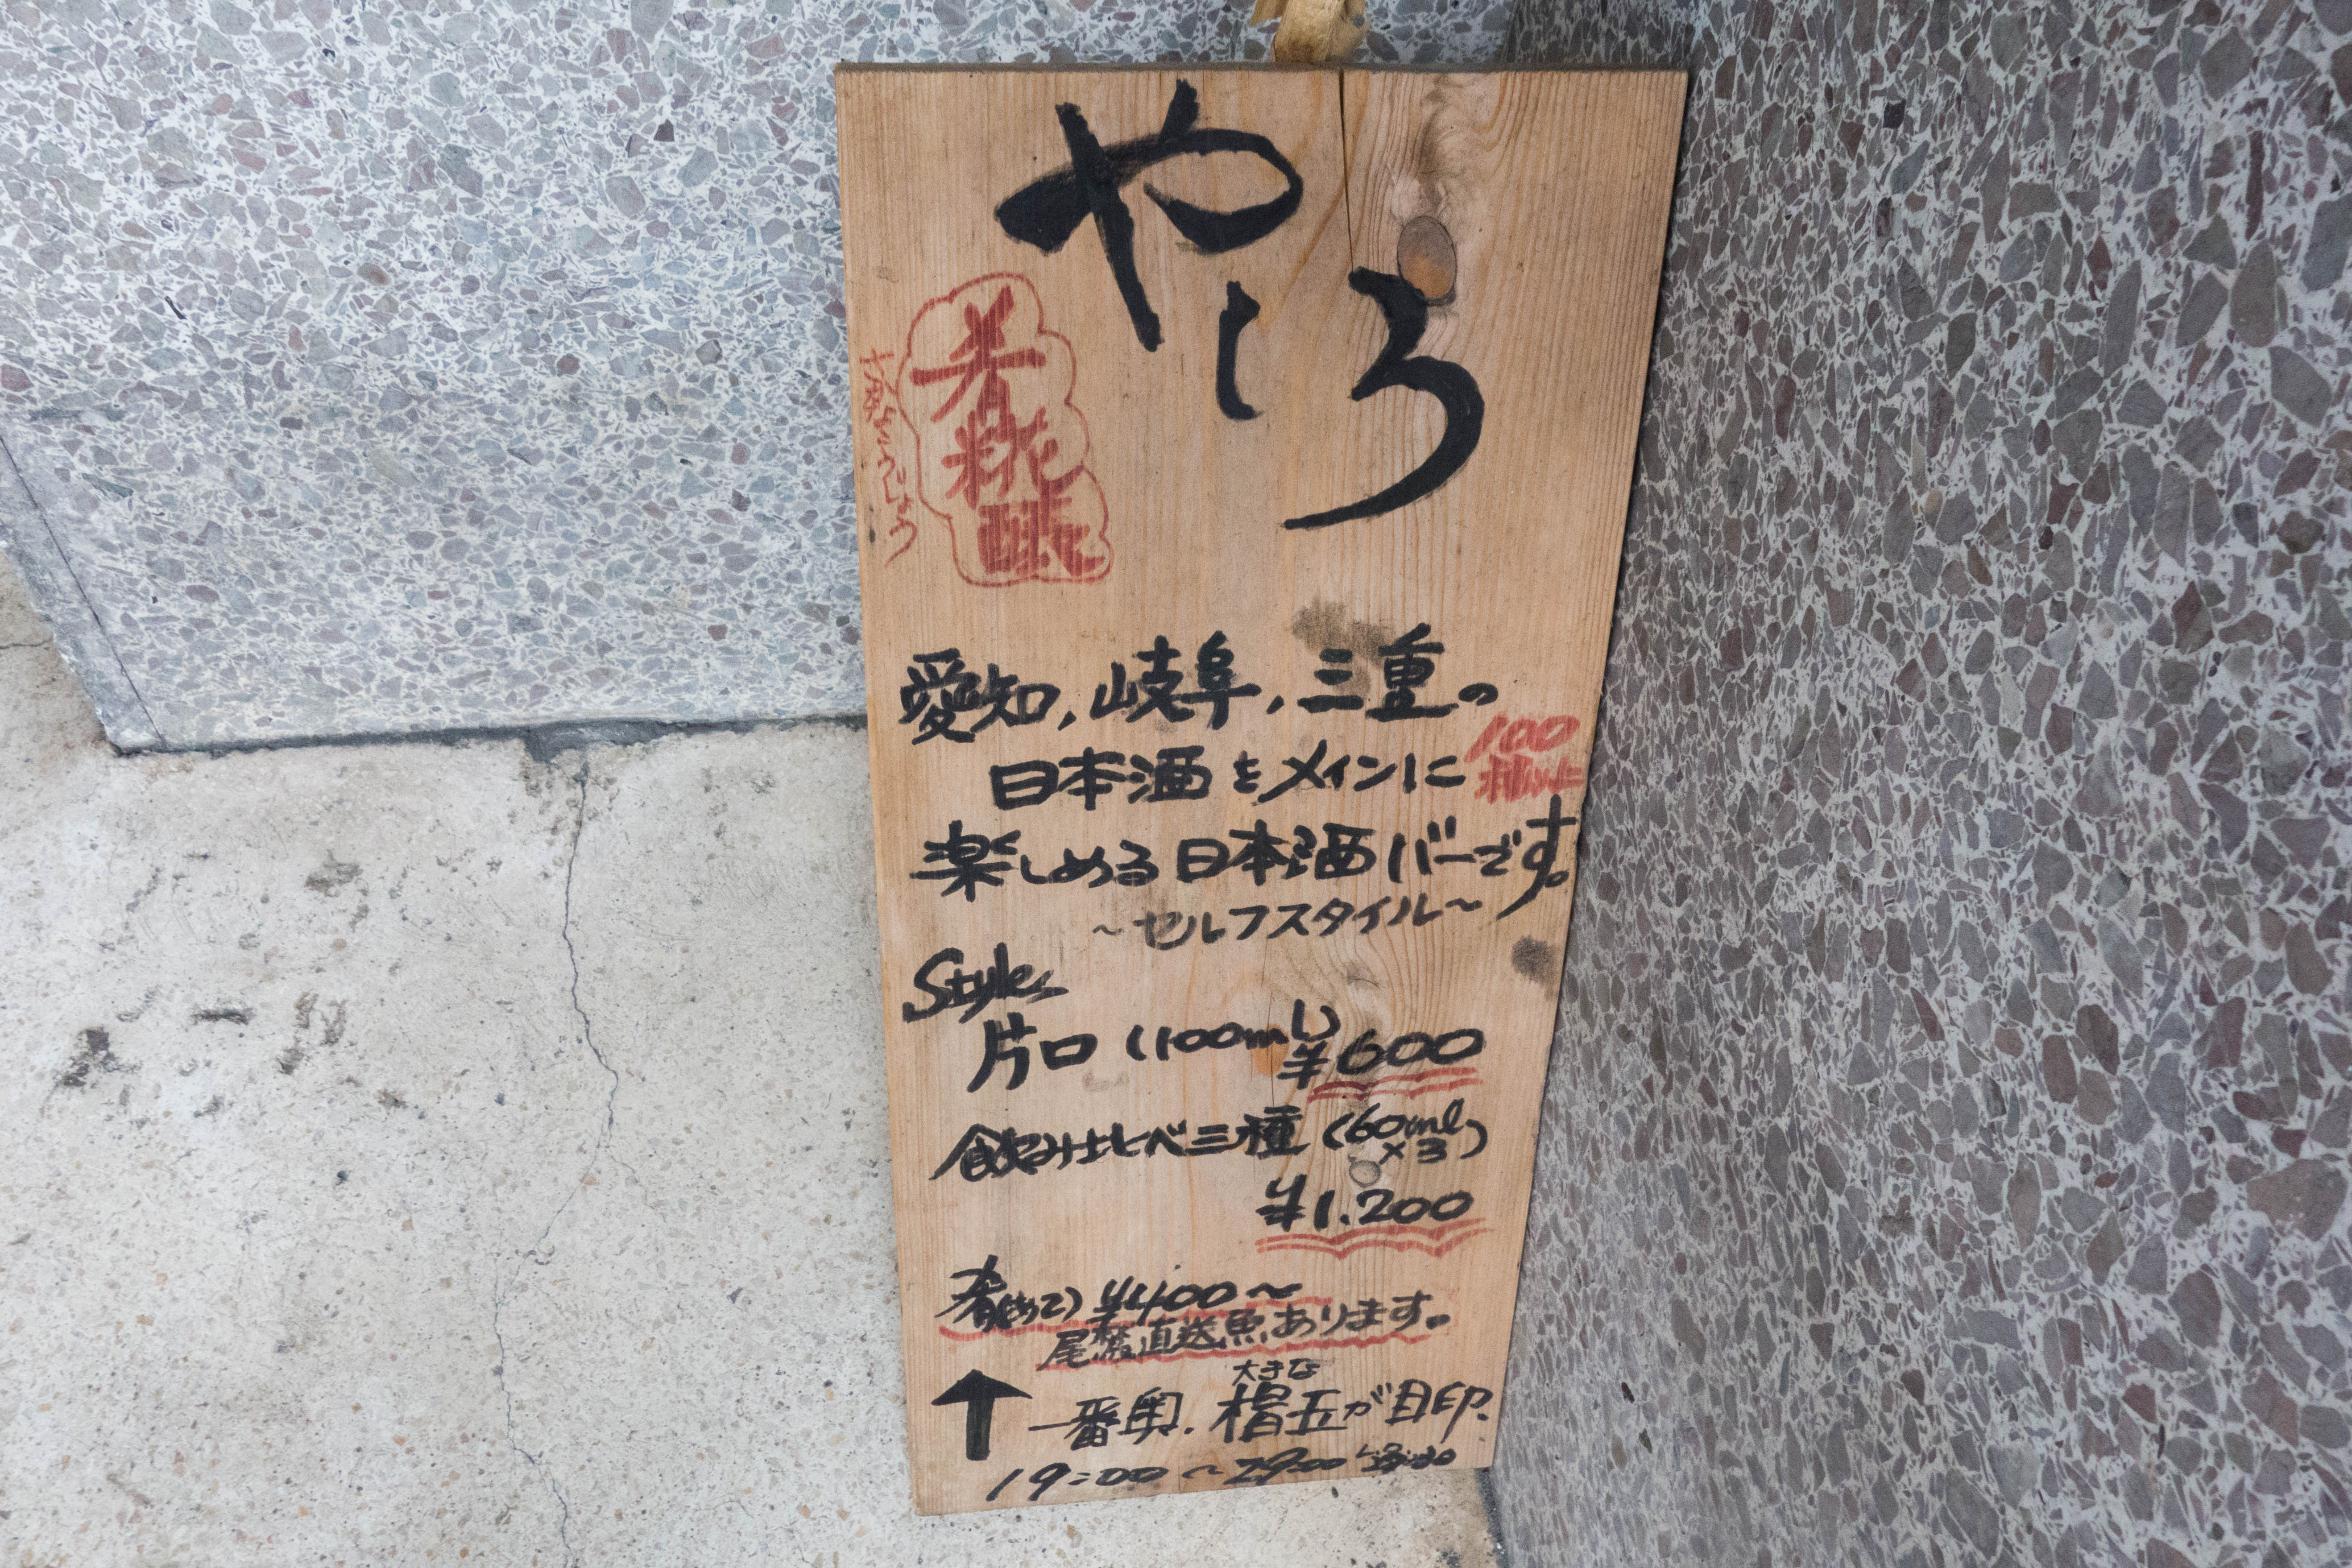 やしろ
肴糀醸
さかなこうじじょう
愛知,岐阜,三重の
日本酒をメインに
100
種以上
楽しめる日本酒バーです。
～セルフスタイル～
Style
片口(100mL)
¥600
飲み比べ三種(60ml
×3)
¥1.200
肴(あて)¥400～
尾鷲直送魚あります。
大きな
↑一番奥.樽玉が目印.
19:00～29:00